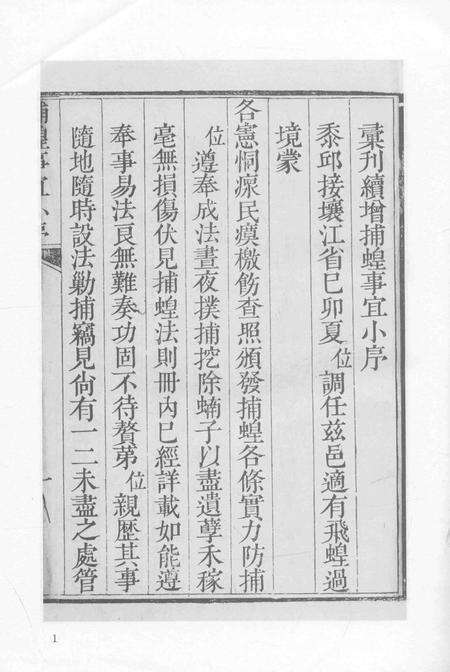 彚刋續增捕蝗事宜小序
忝邱接壤江省巳卯夏位調任兹邑適有飛蝗過
境蒙
各憲恫瘝民瘼檄飭查照頒發捕蝗各條實力防捕
位遵奉成法晝夜撲捕挖除蝻子以盡遺孽禾稼
毫無損傷伏見捕蝗法則冊內已經詳載如能遵
奉事易法良無難奏功固不待贅苐位親歷其事
隨地隨時設法勦捕竊見尙有一二未盡之處管
捕蝗事宜小序
一
1